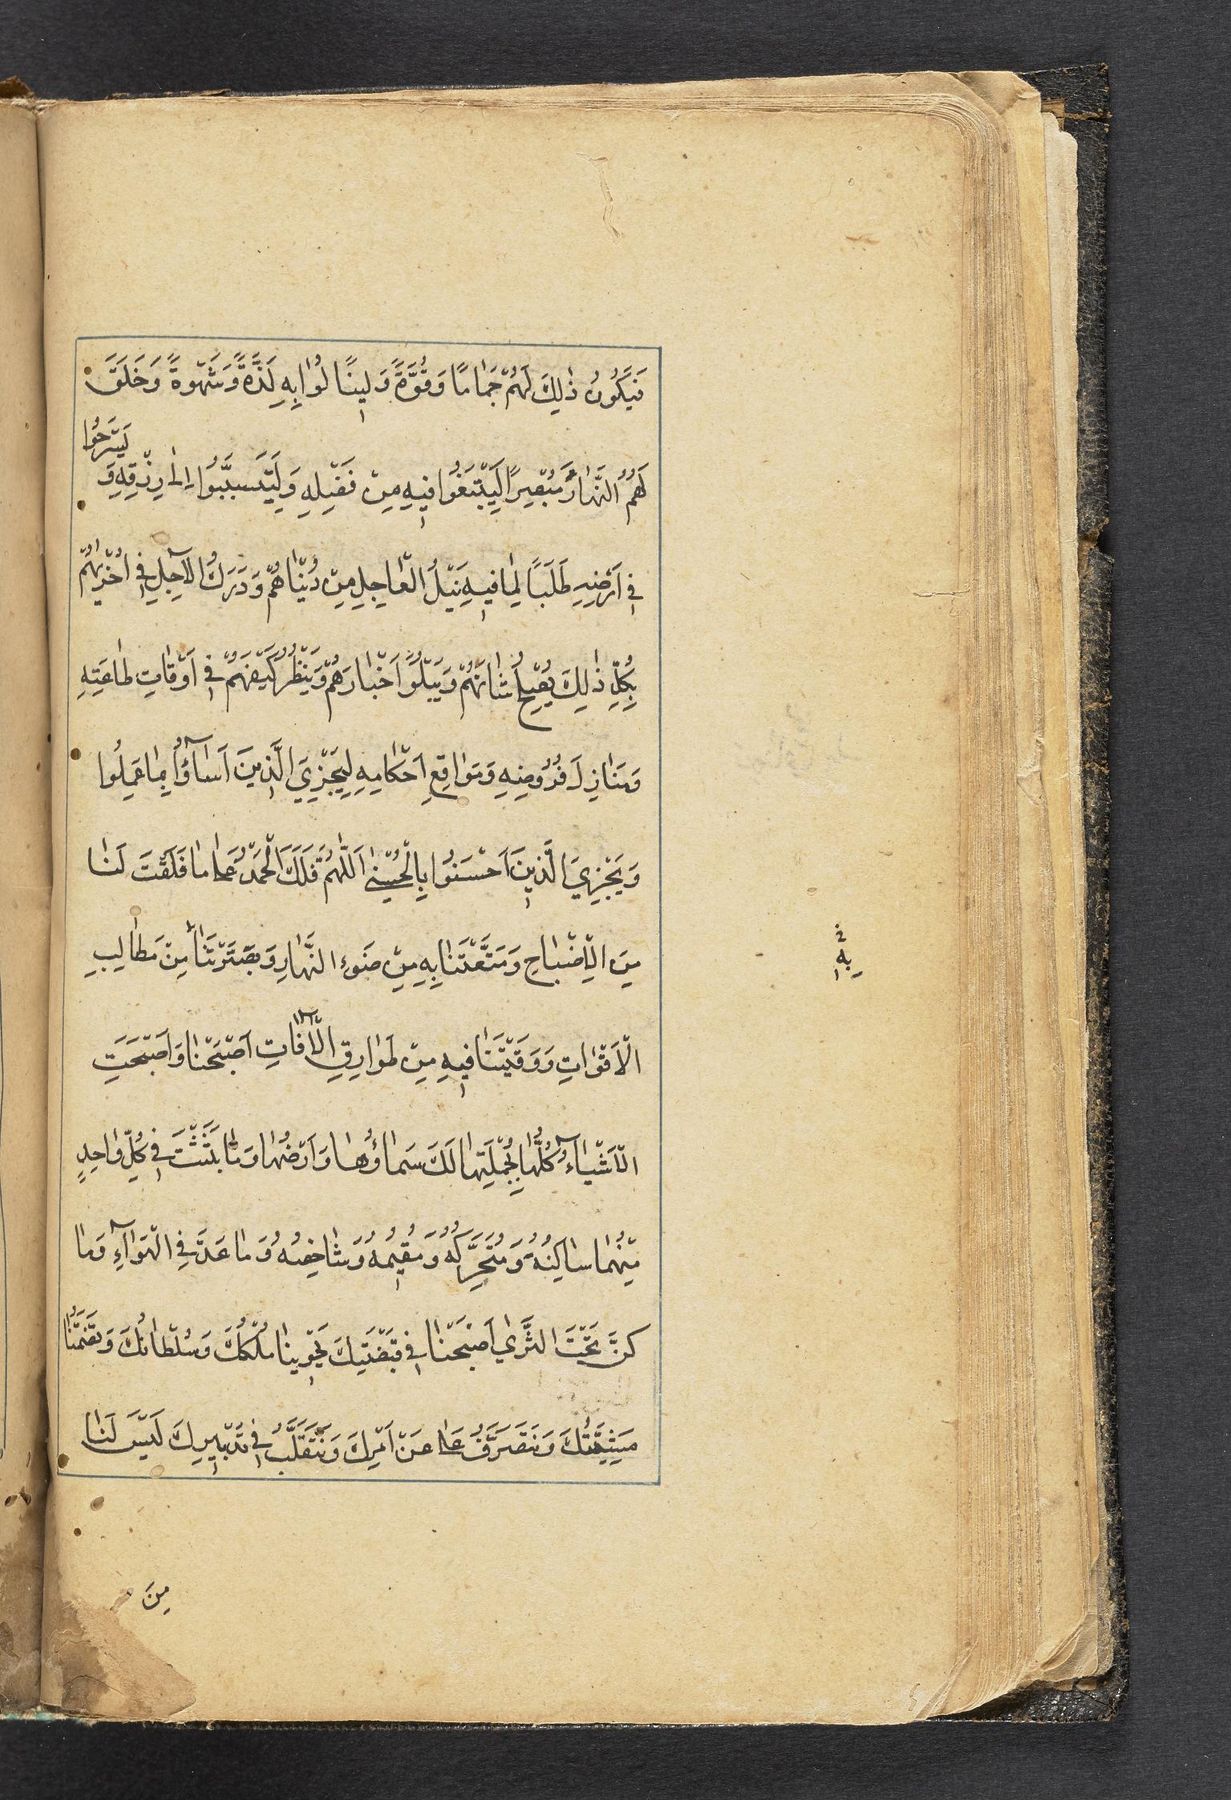 فَيَكُونُ ذٰلِكَ لَهُمْ جَمَامًا وَقُوَّةً وَلِيَنَالُوا بِهِ لَذَّةً وَشَهْوَةً وَخَلَقَ
لَهُمُ النَّهَارَ مُبْصِرًا لِيَبْتَغُوا فِيهِ مِنْ فَضْلِهِ وَلِيَتَسَبَّبُوا اِلىٰ رِزْقِهِ وَ يَسْرَحُوا
فِي اَرْضِهِ طَلَبًا لِمَا فِيهِ نَيْلُ الْعَاجِلِ مِنْ دُنْيَاهُمْ وَدَرَكُ الْآجِلِ فِي اُخْرٰيهُمْ
بِكُلِّ ذٰلِكَ يُصْلِحُ شَانَهُمْ وَيَبْلُوَ اَخْبَارَهُمْ وَيَنْظُرُ كَيْفَ هُمْ فِي اَوْقَاتِ طَاعَتِهِ
وَمَنَازِلِ فُرُوضِهِ وَمَوَاقِعِ اَحْكَامِهِ لِيَجْزِيَ الَّذِينَ اَسَاۤؤُا بِمَا عَمِلُوا
وَيَجْزِيَ الَّذِينَ اَحْسَنُوا بِالْحُسْنىٰ اَللّٰهُمَّ فَلَكَ الْحَمْدُ عَلىٰ مَا فَلَقْتَ لَنَا
مِنَ الْاِصْبَاحِ وَمَتَّعْتَنَا بِهِ مِنْ ضَوْءِ النَّهَارِ وَبَصَّرْتَنَا مِنْ مَطَالِبِ
بِهِ
الْاَقْوَاتِ وَوَقَيْتَنَا فِيهِ مِنْ طَوَارِقِ الْآفَاتِ اَصْبَحْنَا وَاَصْبَحَتِ
الْاَشْيَاۤءُ كُلُّهَا بِجُمْلَتِهَا لَكَ سَمَاؤُهَا وَاَرْضُهَا وَمَا بَثَثْتَ فِي كُلِّ وَاحِدٍ
مِنْهُمَا سَاكِنُهُ وَمُتَحَرِّكُهُ وَمُقِيمُهُ وَشَاخِصُهُ وَمَا عَلَا فِي الْهَوَاۤءِ وَمَا
كَنَّ تَحْتَ الثَّرٰي اَصْبَحْنَا فِي قَبْضَتِكَ يَحْوِينَا مُلْكُكَ وَسُلْطَانُكَ وَتَضُمُّنَا
مَشِيَّتُكَ وَنَتَصَرَّفُ عَنْ اَمْرِكَ وَنَتَقَلَّبُ فِي تَدْبِيرِكَ لَيْسَ لَنَا
مِنَ